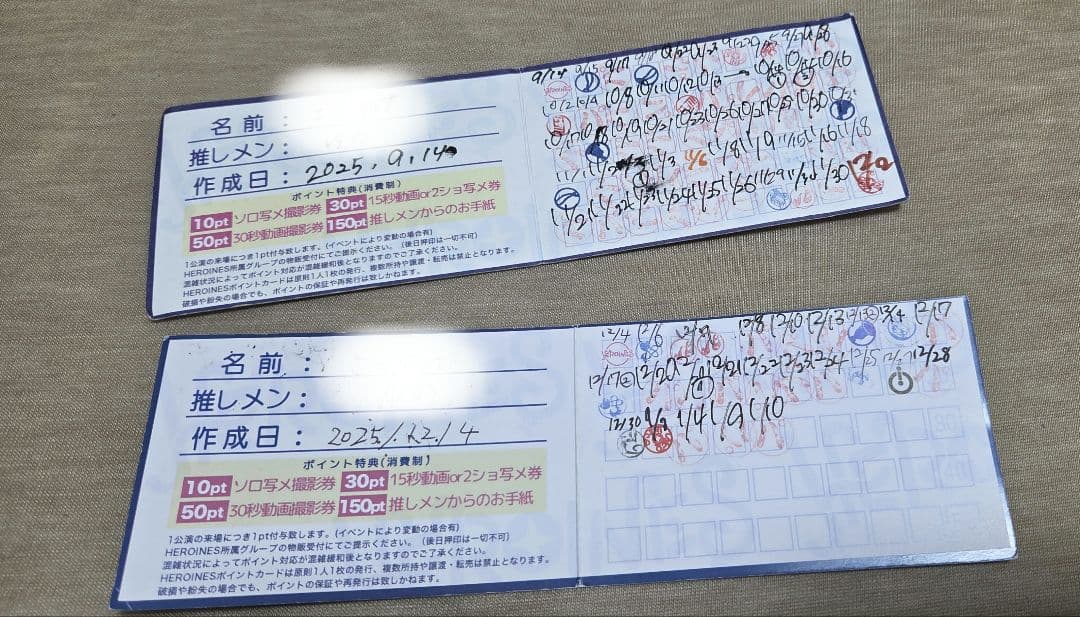 名前：
推しメン：
作成日：2025.9.14
ポイント特典(消費制)
10pt ソロ写メ撮影券 30pt 15秒動画or2ショ写メ券
50pt 30秒動画撮影券 150pt 推しメンからのお手紙
1公演の来場につき1pt付与致します。(イベントにより変動の場合有)
HEROINES所属グループの物販受付にてご提示ください。(後日押印は一切不可)
混雑状況によってポイント対応が混雑緩和後となりますのでご了承ください。
HEROINESポイントカードは原則1人1枚の発行、複数所持や譲渡・転売は禁止となります。
破損や紛失の場合でも、ポイントの保証や再発行は致しかねます。
9/14 9/15 9/17
10/2 10/4 10/8 10/11 10/12 10/13 10/16
10/17 10/19 10/21 10/23 10/26 10/27 10/30
11/1 11/2 11/3 11/6 11/8 11/9 11/15 11/16 11/18
11/21 11/22 11/23 11/24 11/25 11/26 11/29 11/30
名前：
推しメン：
作成日：2025/12/4
ポイント特典(消費制)
10pt ソロ写メ撮影券 30pt 15秒動画or2ショ写メ券
50pt 30秒動画撮影券 150pt 推しメンからのお手紙
1公演の来場につき1pt付与致します。(イベントにより変動の場合有)
HEROINES所属グループの物販受付にてご提示ください。(後日押印は一切不可)
混雑状況によってポイント対応が混雑緩和後となりますのでご了承ください。
HEROINESポイントカードは原則1人1枚の発行、複数所持や譲渡・転売は禁止となります。
破損や紛失の場合でも、ポイントの保証や再発行は致しかねます。
12/4 12/6 12/8 12/10 12/13 12/17
12/17 12/20 12/21 12/22 12/23 12/24 12/25 12/28
12/30 1/4 1/9 1/10